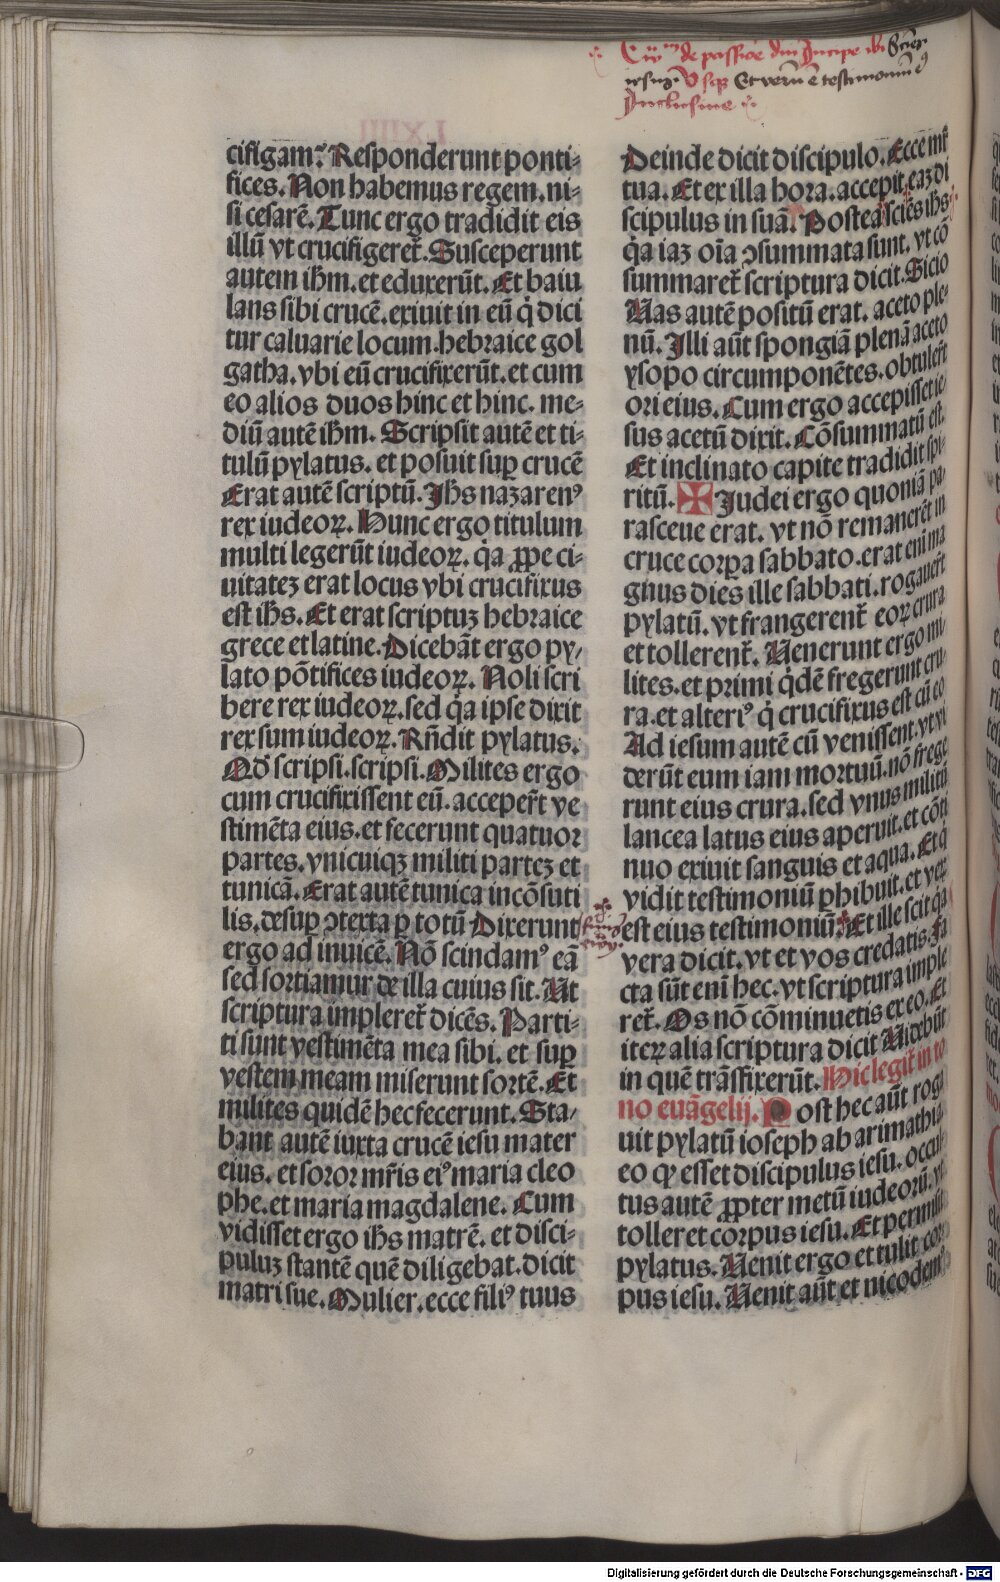 Euͫ de passioe dni Incipe ibi Sciēs
iesus. Usq; Et verū ē testimoniū eꝰ
Inclusiue
cifigam? Responderunt ponti-
fices. Non habemus regem. ni-
si cesarē. Tunc ergo tradidit eis
illū vt crucifigeret̄. Susceperunt
autem ih̄m. et eduxerūt. Et baiu
lans sibi crucē. exiuit in eū q̇ dici
tur caluarie locum. hebraice gol
gatha. vbi eū crucifixerūt. et cum
eo alios duos hinc et hinc. me-
diū autē ih̄m. Scripsit autē et ti-
tulū pylatus. et posuit suꝑ crucē
Erat autē scriptū. Ih̄s nazarenꝰ
rex iudeoꝝ. Hunc ergo titulum
multi legerūt iudeoꝝ. q̇a ꝓpe ci-
uitateꝫ erat locus vbi crucifixus
est ih̄s. Et erat scriptuꝫ hebraice
grece et latine. Dicebāt ergo py-
lato pōtifices iudeoꝝ. Noli scri
bere rex iudeoꝝ. sed q̇a ipse dixit
rex sum iudeoꝝ. Rn̄dit pylatus.
Qd̄ scripsi. scripsi. Milites ergo
cum crucifixissent eū. acceper̄t ve
stimēta eius. et fecerunt quatuor
partes. vnicuiqꝫ militi parteꝫ et
tunicā. Erat autē tunica incōsuti
lis. desuꝑ ↄtexta ꝑ totū Dixerunt
ergo ad inuicē. Nō scindamꝰ eā
sed sortiamur de illa cuius sit. Ut
scriptura impleret̄ dicēs. Parti-
ti sunt vestimēta mea sibi. et suꝑ
vestem meam miserunt sortē. Et
milites quidē hec fecerunt. Sta-
bant autē iuxta crucē iesu mater
eius. et soror mr̄is eiꝰ maria cleo
phe. et maria magdalene. Cum
vidisset ergo ih̄s matrē. et disci-
puluꝫ stantē quē diligebat. dicit
matri sue. Mulier. ecce filiꝰ tuus
Deinde dicit discipulo. Ecce mr̄
tua. Et ex illa hora. accepit eaꝫ di
scipulus in suā. Postea sciēs ih̄s
q̇a iaꝫ oīa ↄsummata sunt. vt cō
summaret̄ scriptura dicit. Sicio
Uas autē positū erat. aceto ple-
nū. Illi aūt spongiā plenā aceto
ysopo circumponētes. obtuler̄t
ori eius. Cum ergo accepisset ie-
sus acetū dixit. Cōsummatū est.
Et inclinato capite tradidit spi-
ritū. ✠ Iudei ergo quoniā pa-
rasceue erat. vt nō remanerēt in
cruce corꝑa sabbato. erat eni ma
gnus dies ille sabbati. rogauer̄t
pylatū. vt frangerent̄ eoꝝ crura
et tollerent̄. Uenerunt ergo mi-
lites. et primi q̇dē fregerunt cru-
ra. et alteriꝰ q̇ crucifixus est cū eo
Ad iesum autē cū venissent. vt vi
derūt eum iam mortuū. nō frege
runt eius crura. sed vnus militū
lancea latus eius aperuit. et cōti
nuo exiuit sanguis et aqua. Et q̇
vidit testimoniū ꝑhibuit. et veꝝ
est eius testimoniū. Et ille scit q̇a
vera dicit. vt et vos credatis. Fa
cta sūt eni hec. vt scriptura imple
ret̄. Os nō cōminuetis ex eo. Et
iteꝝ alia scriptura dicit Uidebūt
in quē trāsfixerūt. Hic legit̄ in to
no euāgelij. Post hec aūt roga
uit pylatū ioseph ab arimathia
eo ꝙ esset discipulus iesu. occul-
tus autē ꝓpter metū iudeorū. vt
tolleret corpus iesu. Et permisit
pylatus. Uenit ergo et tulit cor
pus iesu. Uenit aūt et nicodemꝰ
Digitalisierung gefördert durch die Deutsche Forschungsgemeinschaft - DFG